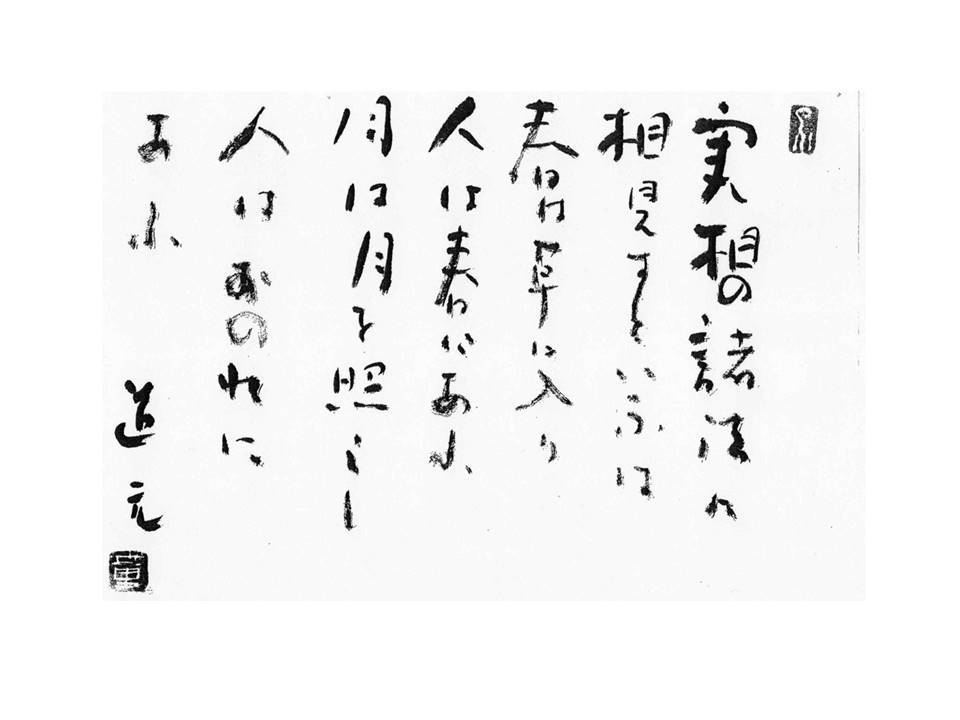 実相の諸法に
相見すといふは
春は草に入り
人は春にあふ
月は月を照らし
人はおのれに
あふ
道元